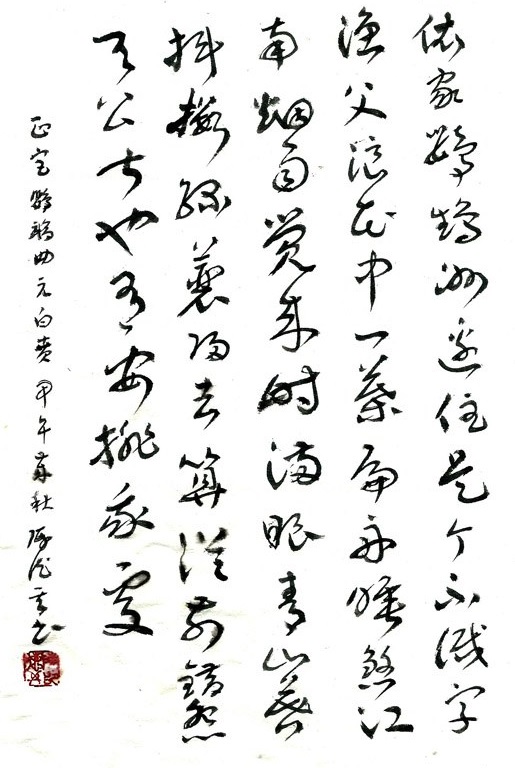 侬家鹦鹉洲边住是个不识字
渔父浪花中一葉扁舟睡煞江
南烟雨觉来时满眼青山暮
抖擞绿蓑归去算从前錯怨
天公甚也有安排我处
正宫鹦鹉曲元白贲甲午秋书